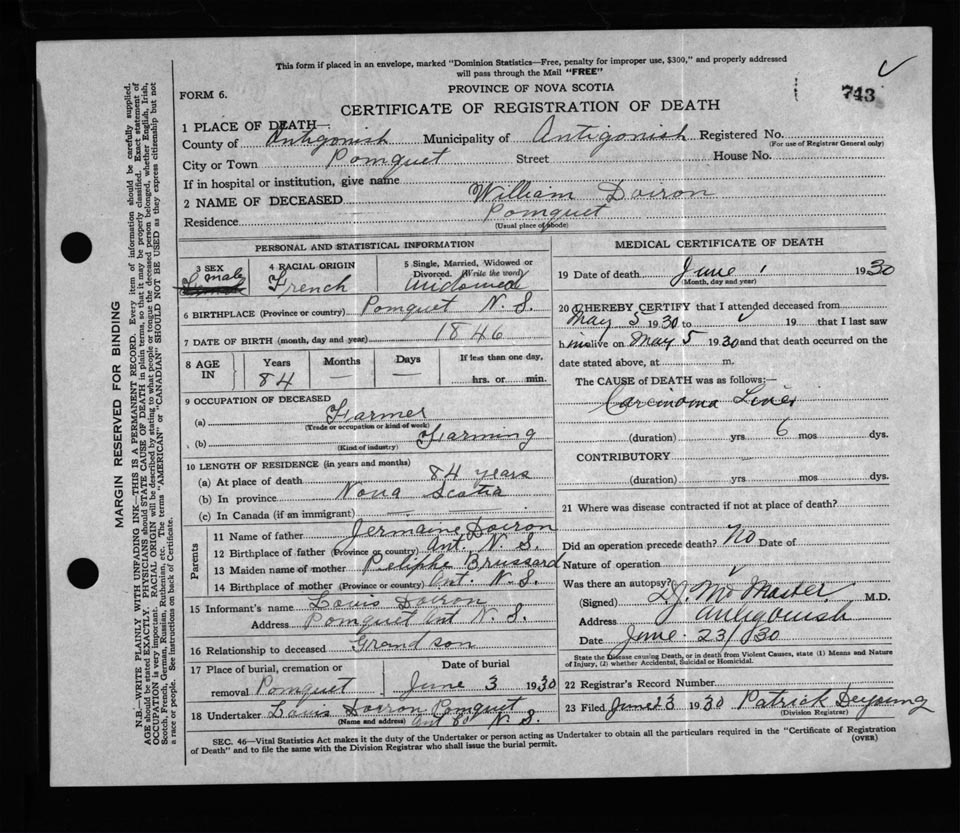 This form if placed in an envelope, marked "Dominion Statistics—Free, penalty for improper use, $300," and properly addressed
will pass through the Mail "FREE"
PROVINCE OF NOVA SCOTIA
743
FORM 6.
CERTIFICATE OF REGISTRATION OF DEATH
1 PLACE OF DEATH—
County of Antigonish Municipality of Antigonish Registered No.
(For use of Registrar General only)
City or Town Pomquet Street House No.
If in hospital or institution, give name
2 NAME OF DECEASED William Doiron
Residence Pomquet
(Usual place of abode)
PERSONAL AND STATISTICAL INFORMATION
3 SEX male
4 RACIAL ORIGIN French
5 Single, Married, Widowed or
Divorced. (Write the word)
Widowed
6 BIRTHPLACE (Province or country) Pomquet N. S.
7 DATE OF BIRTH (month, day and year) 1846
8 AGE IN Years 84 Months — Days — If less than one day, hrs. or min.
9 OCCUPATION OF DECEASED
(a) Farmer
(Trade or occupation or kind of work)
(b) Farming
(Kind of industry)
10 LENGTH OF RESIDENCE (in years and months)
(a) At place of death 84 years
(b) In province Nova Scotia
(c) In Canada (if an immigrant)
Parents
11 Name of father Jermaine Doiron
12 Birthplace of father (Province or country) Ant. N. S.
13 Maiden name of mother Peliphe Brussard
14 Birthplace of mother (Province or country) Ant. N. S.
15 Informant's name Louis Doiron
Address Pomquet Ant N. S.
16 Relationship to deceased Grandson
17 Place of burial, cremation or
removal Pomquet
Date of burial
June 3 1930
18 Undertaker Louis Doiron Pomquet
(Name and address) Ant Co N. S.
MEDICAL CERTIFICATE OF DEATH
19 Date of death June 1 1930
(Month, day and year)
20 I HEREBY CERTIFY that I attended deceased from
May 5 1930 to 19 that I last saw
him alive on May 5 1930 and that death occurred on the
date stated above, at m.
The CAUSE of DEATH was as follows:—
Carcinoma Liver
(duration) yrs 6 mos dys.
CONTRIBUTORY
(duration) yrs mos dys.
21 Where was disease contracted if not at place of death?
Did an operation precede death? No Date of
Nature of operation
Was there an autopsy?
(Signed) McMaster M.D.
Address Antigonish
Date June 23/30
State the Disease causing Death, or in death from Violent Causes, state (1) Means and Nature
of Injury, (2) whether Accidental, Suicidal or Homicidal.
22 Registrar's Record Number
23 Filed June 1930 Patrick DeYoung
(Division Registrar)
SEC. 46—Vital Statistics Act makes it the duty of the Undertaker or person acting as Undertaker to obtain all the particulars required in the "Certificate of Registration
of Death" and to file the same with the Division Registrar who shall issue the burial permit.
(OVER)
MARGIN RESERVED FOR BINDING
N.B.—WRITE PLAINLY WITH UNFADING INK—THIS IS A PERMANENT RECORD. Every item of information should be carefully supplied.
AGE should be stated EXACTLY. PHYSICIANS should STATE CAUSE OF DEATH in plain terms, so that it may be properly classified. Exact statement of
OCCUPATION is very important. RACIAL ORIGIN will be described by stating to what people or tongue the deceased person belonged, whether English, Irish,
Scotch, French, German, Russian, Ruthenian, etc. The terms "AMERICAN" or "CANADIAN" SHOULD NOT BE USED as they express citizenship but not
a race or people. See instructions on back of Certificate.